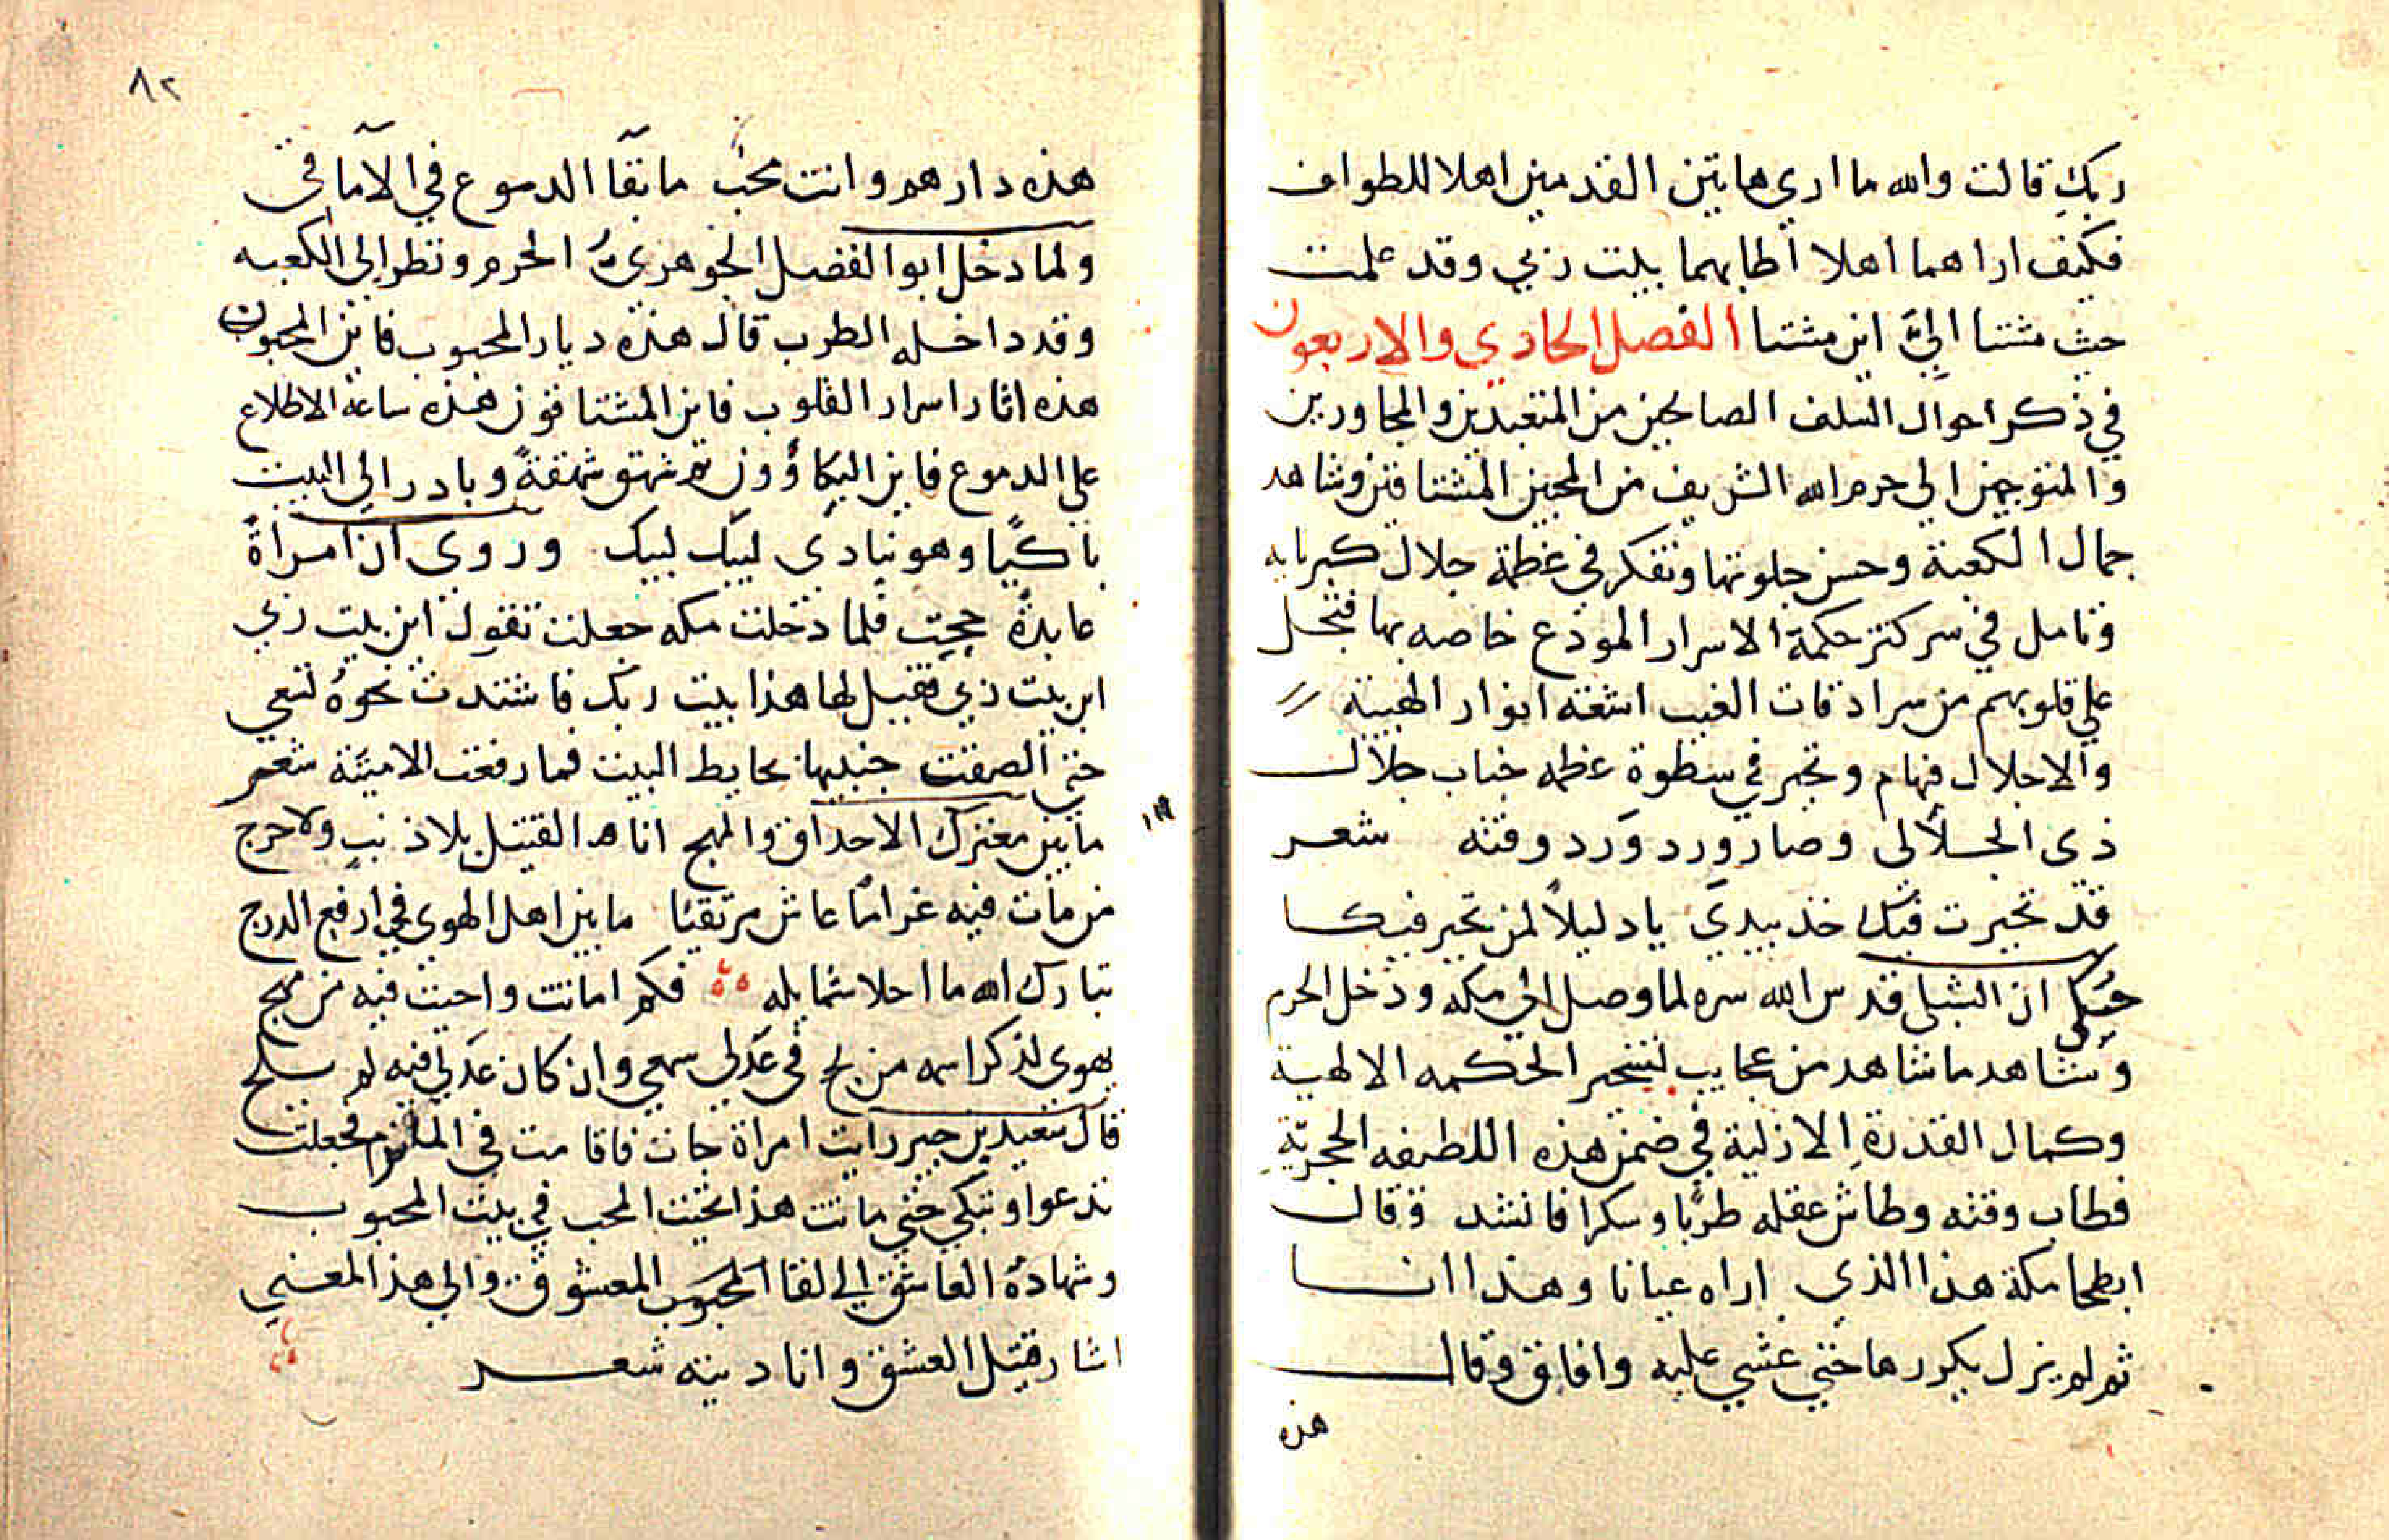 ربك قالت والله ما اري هاتين القدمين اهلا للطواف
فكيف اراهما اهلا اطا بهما بيت ربي وقد علمت
حيث مشتا الي اين مشتا الفصل الحادي والاربعون
في ذكر احوال السلف الصالحين من المتعبدين والمجاورين
والمتوجهين الى حرم الله الشريف من المحبين المشتاقين وشاهد
جمال الكعبة وحسن جلوتها وتفكر في عظمة جلال كبريايه
وتامل في سر كنز حكمة الاسرار المودع خاصه بها فتجل
علي قلوبهم من سرادقات الغيب اشعة انوار الهيبة
والاجلال فهام وتحير في سطوة عظمه جناب جلال
ذى الجلالى وصار ورد ورد وقته شعر
قد تحيرت فيك خذ بيدي يا دليلاً لمن تحير فيكا
حكي ان الشبلي قدس الله سره لما وصل الي مكه ودخل الحرم
وشاهد ما شاهد من عجايب تسخير الحكمه الالهية
وكمال القدرة الازلية في ضمن هذه اللطيفه الحجرية
فطاب وقته وطاش عقله طربًا وسكرا فانشد وقال
ابطحا مكة هذا الذي اراه عيانا وهذا انا
ثم لم يزل يكررها حتي غشي عليه وافاق وقال
هذه
٨٢
هذه دارهم وانت محب ما بقا الدموع في الآماقى
ولما دخل ابوا الفضل الجوهري الحرم ونظر الى الكعبه
وقد داخله الطرب قال هذه ديار المحبوب فاين المحبون
هذه اثار اسرار القلوب فاين المشتاقون هذه ساعة الاطلاع
على الدموع فاين البكاؤون ثم شهق شهقةً وبادر الي البيت
باكيًا وهو ينادي لبيك لبيك وروي ان امراةً
عابدةً حجت فلما دخلت مكه جعلت تقول اين بيت ربي
اين بيت ربي فقيل لها هذا بيت ربك فاشتدت نحوه تسعي
حتي الصقت جنبيها بحايط البيت فما رفعت الا ميتة شعر
ما بين معترك الاحداق والمهج انا القتيل بلا ذنب ولا حرج
من مات فيه غراما عاش مرتقيا ما بين اهل الهوي في ارفع الدرج
تبارك الله ما احلا شمايله فكم اماتت واحيت فيه من مهج
يهوى لذكر اسمه من لج في عذلي سمعي وان كان عذلي فيه لم يلج
قال سعيد بن جبير رايت امراة جات فاقامت في الملتزم فجعلت
تدعوا وتبكي حتي ماتت هذا تحيت المحب في بيت المحبوب
وشهادة العاشق الي لقا المحبوب المعشوق والي هذا المعني
اشار قتيل العشق وانا دينه شعر